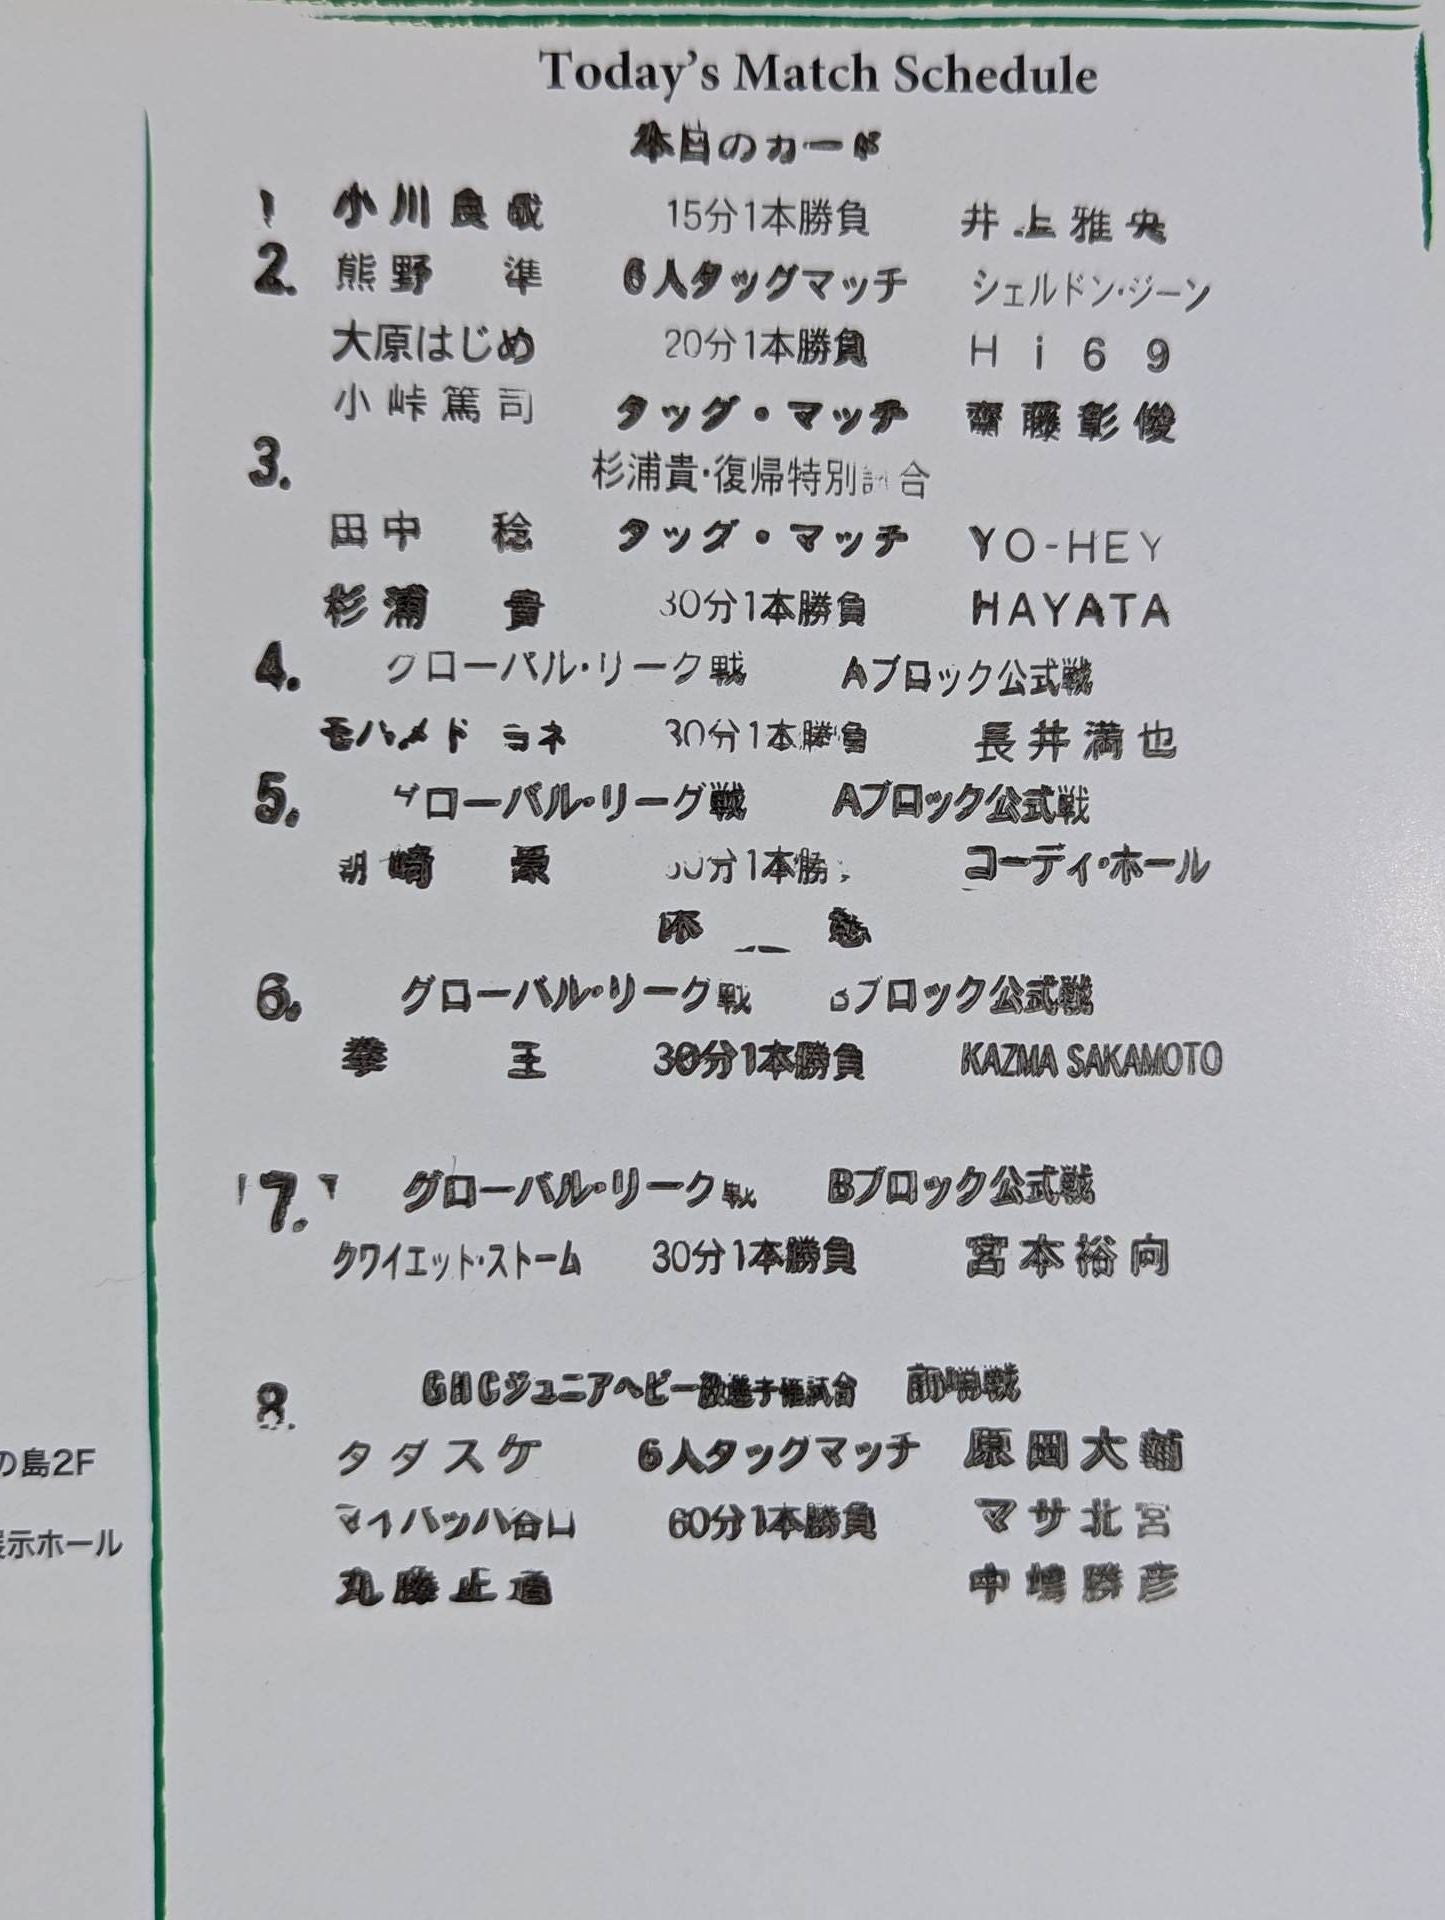 Today's Match Schedule
本日のカード
1 小川良成 15分1本勝負 井上雅央
2. 熊野 準 6人タッグマッチ シェルドン・ジーン
大原はじめ 20分1本勝負 Hi69
小峠篤司 タッグ・マッチ 齋藤彰俊
3. 杉浦貴・復帰特別試合
田中 稔 タッグ・マッチ YO-HEY
杉浦 貴 30分1本勝負 HAYATA
4. グローバル・リーグ戦 Aブロック公式戦
モハメド ヨネ 30分1本勝負 長井満也
5. グローバル・リーグ戦 Aブロック公式戦
潮﨑 豪 30分1本勝負 コーディ・ホール
休 憩
6. グローバル・リーグ戦 Bブロック公式戦
拳 王 30分1本勝負 KAZMA SAKAMOTO
7. グローバル・リーグ戦 Bブロック公式戦
クワイエット・ストーム 30分1本勝負 宮本裕向
8. GHCジュニアヘビー級選手権試合 前哨戦
タダスケ 6人タッグマッチ 原田大輔
マイバッハ谷口 60分1本勝負 マサ北宮
丸藤正道 中嶋勝彦
の島2F
展示ホール